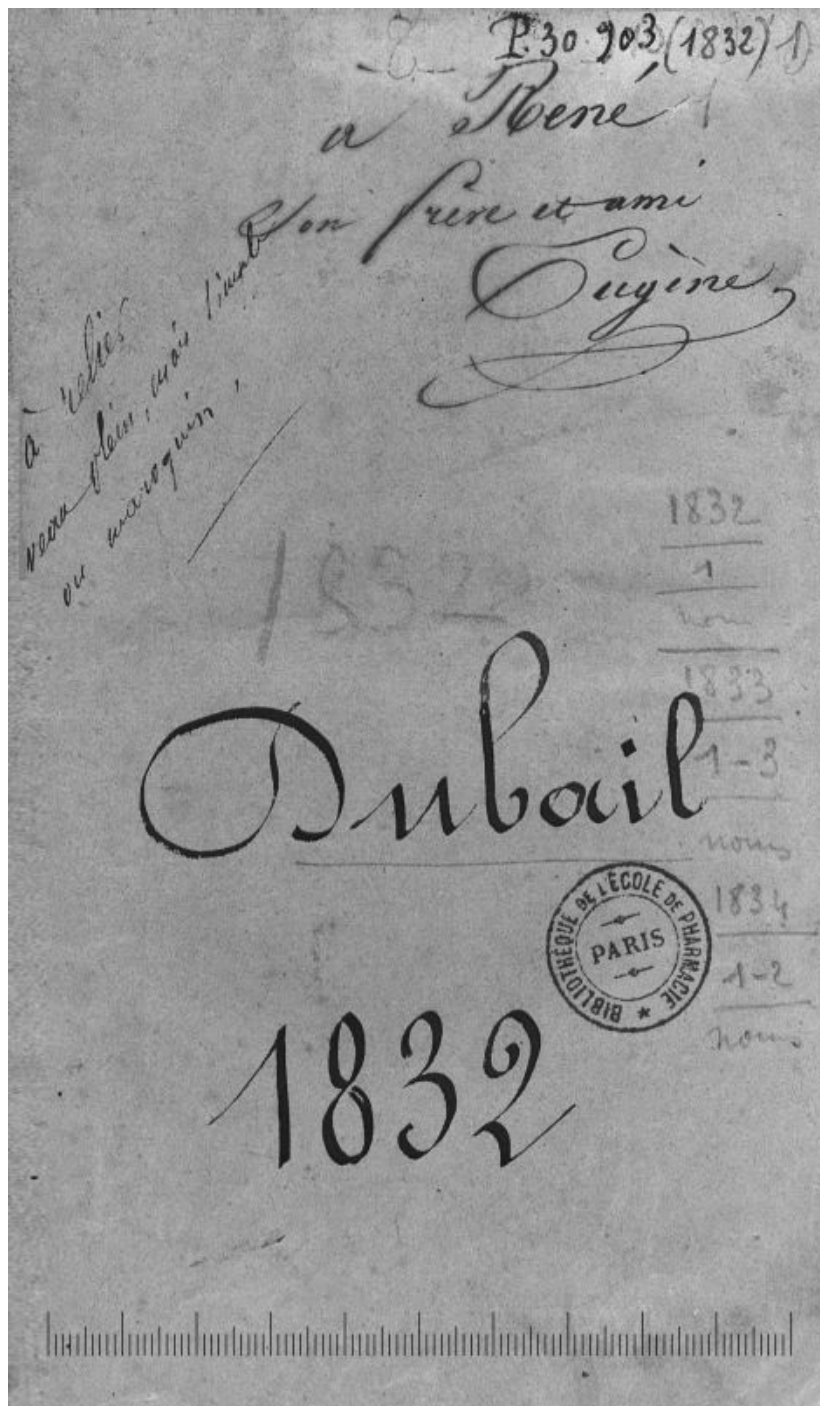 P.30 903 (1832) 1
a René
Son frère et ami
Eugène
à relier
veau plein, mais
ou maroquin,
1832
1832
1
nom
1833
1-3
noms
Dubail
1834
1-2
noms
BIBLIOTHÈQUE DE L'ÉCOLE DE PHARMACIE
PARIS
1832